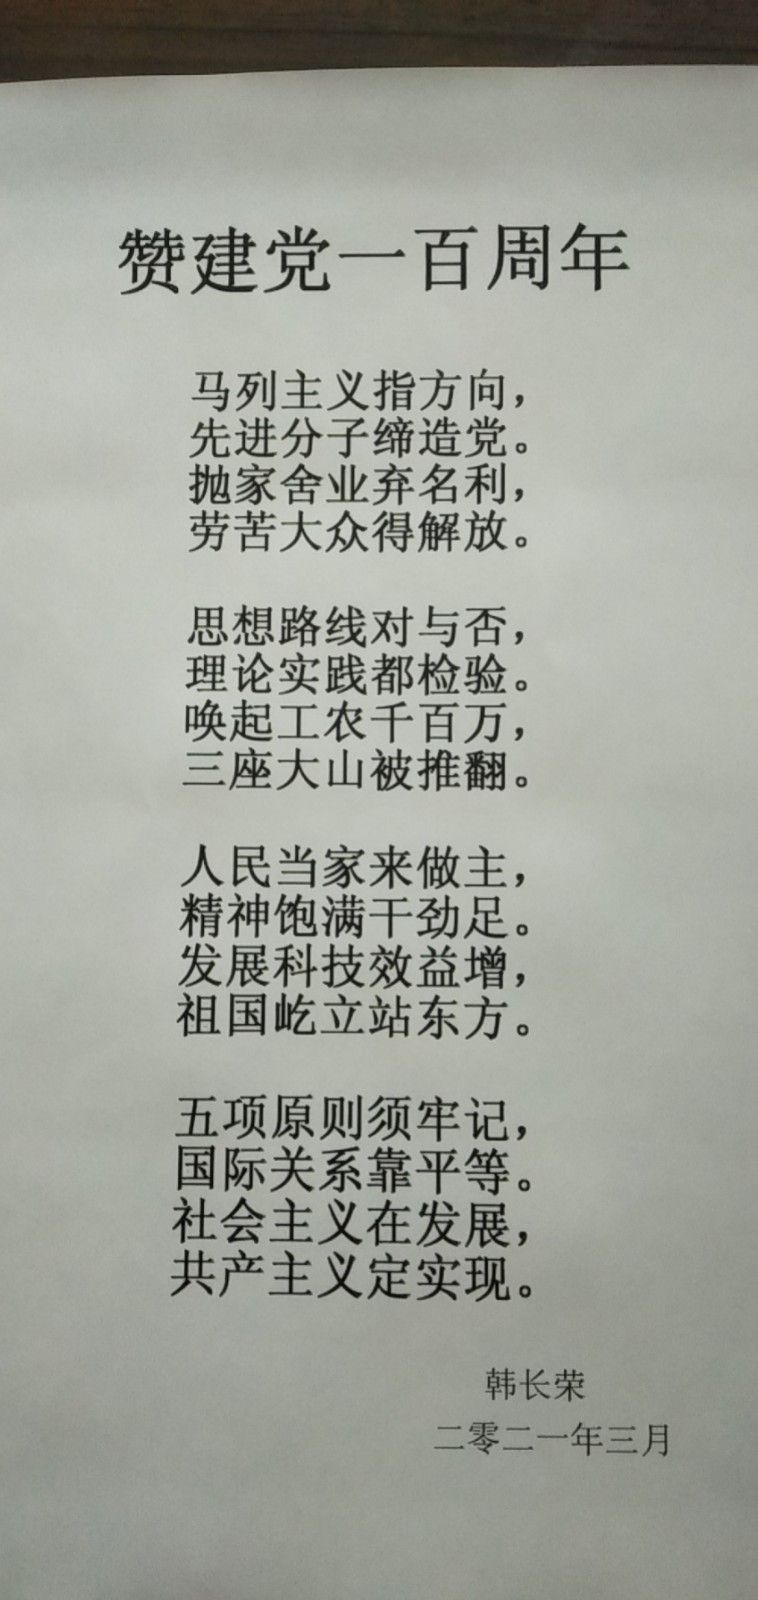 赞建党一百周年
马列主义指方向，
先进分子缔造党。
抛家舍业弃名利，
劳苦大众得解放。
思想路线对与否，
理论实践都检验。
唤起工农千百万，
三座大山被推翻。
人民当家来做主，
精神饱满干劲足。
发展科技效益增，
祖国屹立站东方。
五项原则须牢记，
国际关系靠平等。
社会主义在发展，
共产主义定实现。
韩长荣
二零二一年三月